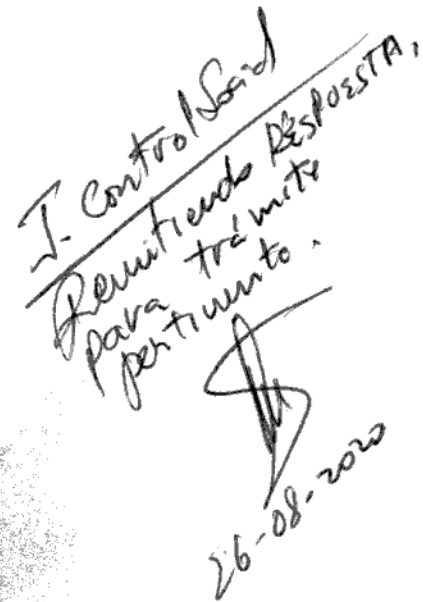 J. Control Social
Remitiendo RESPUESTA,
para trámite
pertinente.
26-08-2020